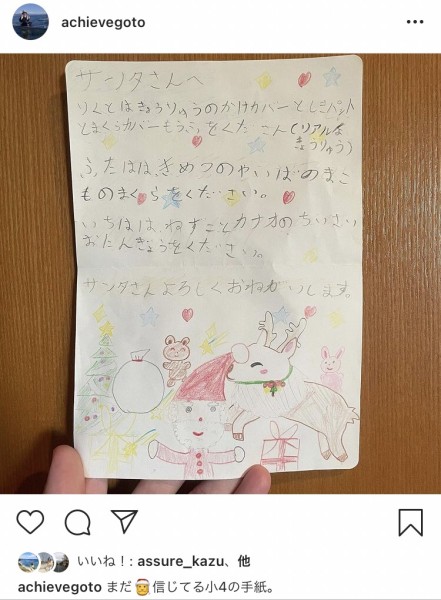 achievegoto
サンタさんへ
りくとはきょうりゅうのかけカバーとしきパット
とまくらカバーもうふをください(リアルな
きょうりゅう)
ふたばは、きめつのやいばのまこ
ものまくらをください。
いちほは、ねずことカナオのちいさい
おにんぎょうをください。
サンタさんよろしくおねがいします。
いいね！: assure_kazu、他
achievegoto まだ🎅信じてる小4の手紙。